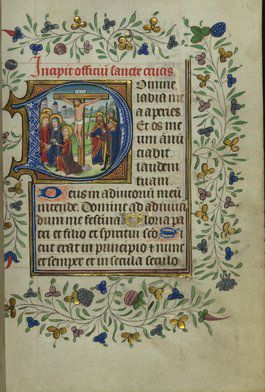 Incipit officiu sancte crucis.
Domine
labia me
a aperies.
Et os me
um annū
ciabit
laudem
tuam.
Deus in adiutoriū meū
intende. Domine ad adiuuā
dum me festina Gloria pa
tri et filio et spiritui sc̄o
Sicut erat in principio & nunc
et semper et in secula seculo